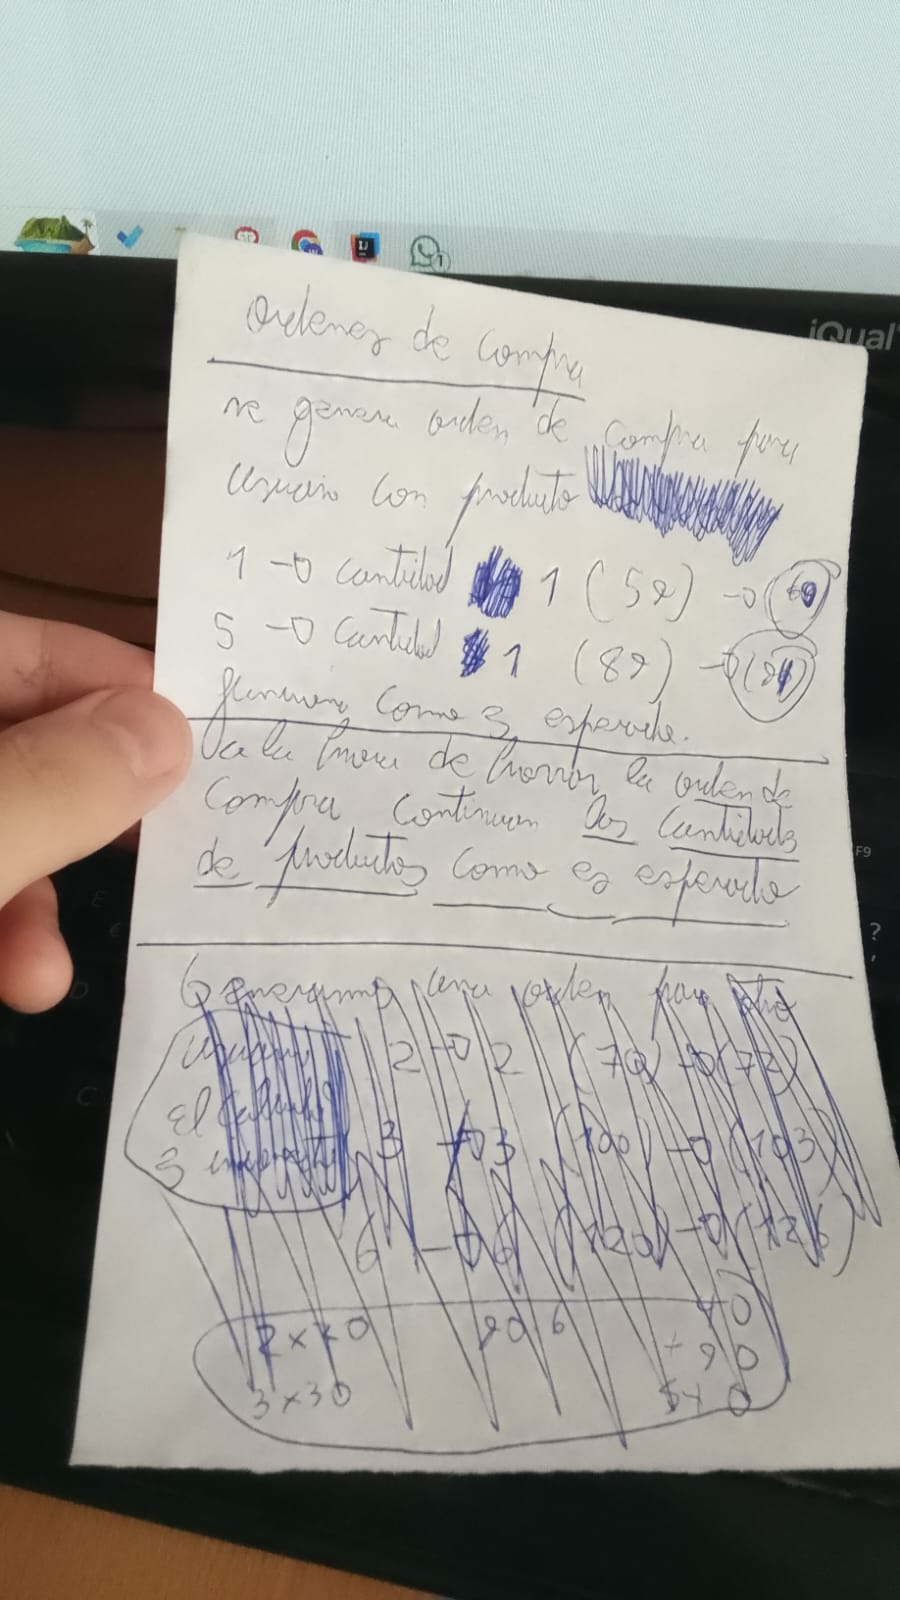 iQual
Ordenes de Compra
se genera orden de Compra para
usuario con producto
1 → Cantidad 1 (59) →
5 → Cantidad 1 (89) →
funciona como es esperado.
a la hora de borrar la orden de
Compra continuan las Cantidades
de productos como es esperado
F9
?
Generamos una orden para otro
usuario 2 → 2 (70) → (72)
El
3 → 3 (100) → (103)
6 → 6 (120) → (126)
90
3 x 30